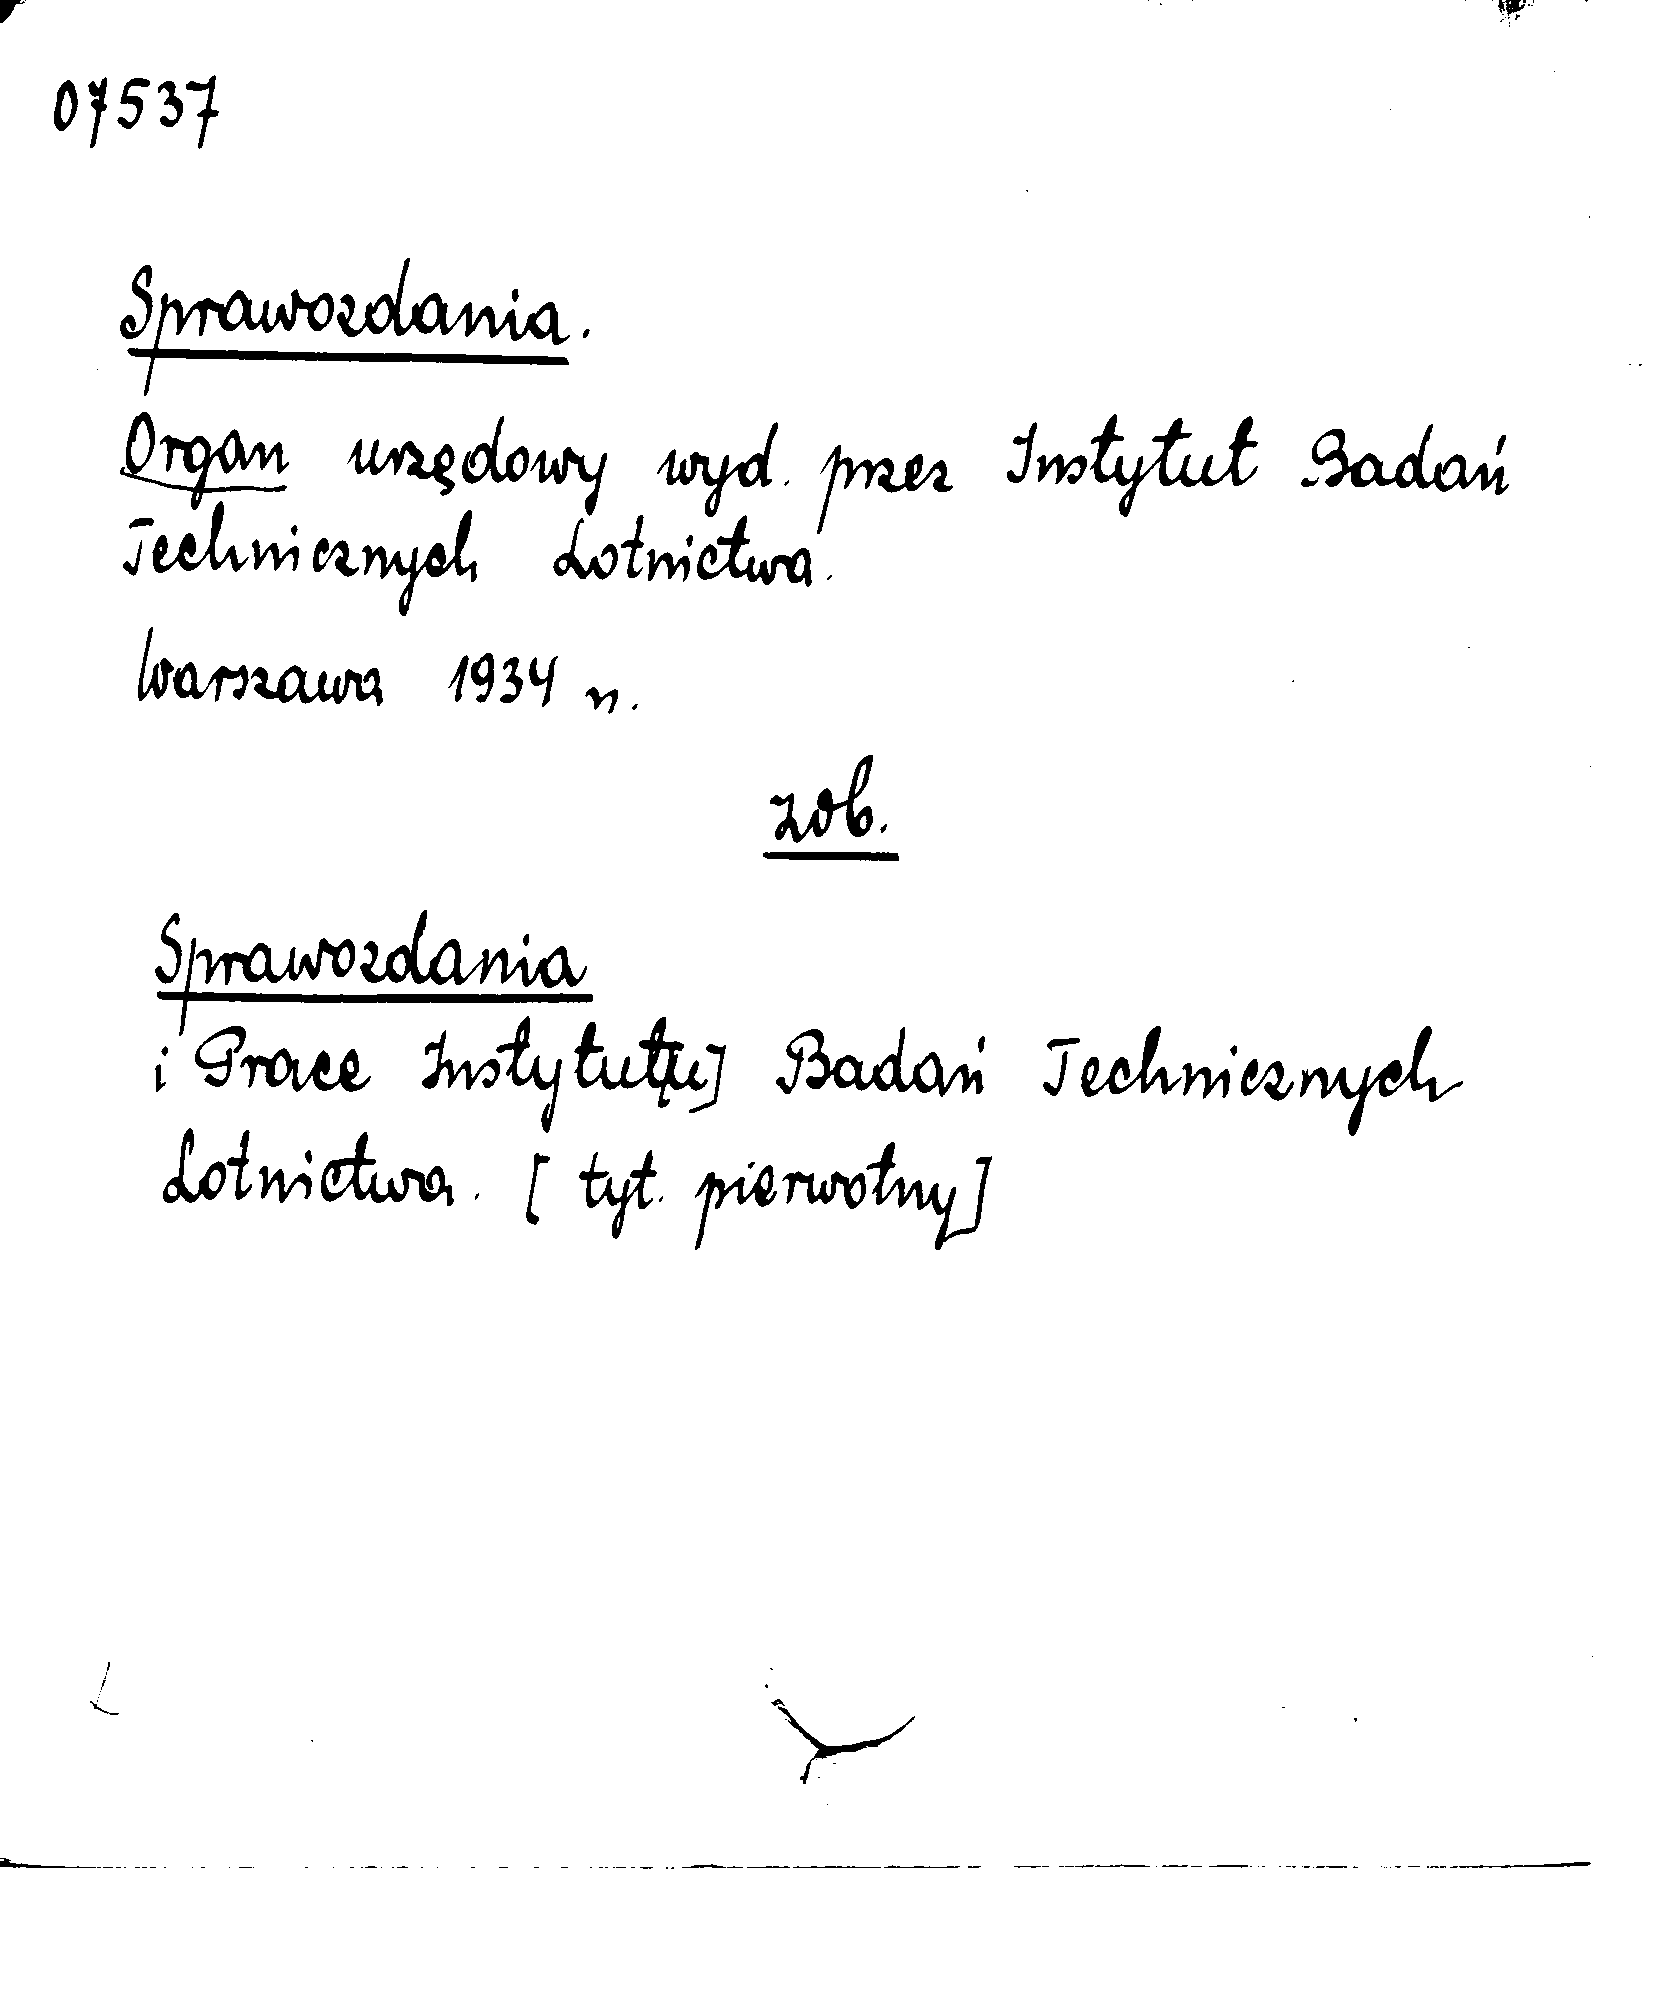 07537
Sprawozdania.
Organ urzędowy wyd. przez Instytut Badań
Technicznych Lotnictwa.
Warszawa 1934 n.
zob.
Sprawozdania
i Prace Instytut[u] Badań Technicznych
Lotnictwa. [tyt. pierwotny]